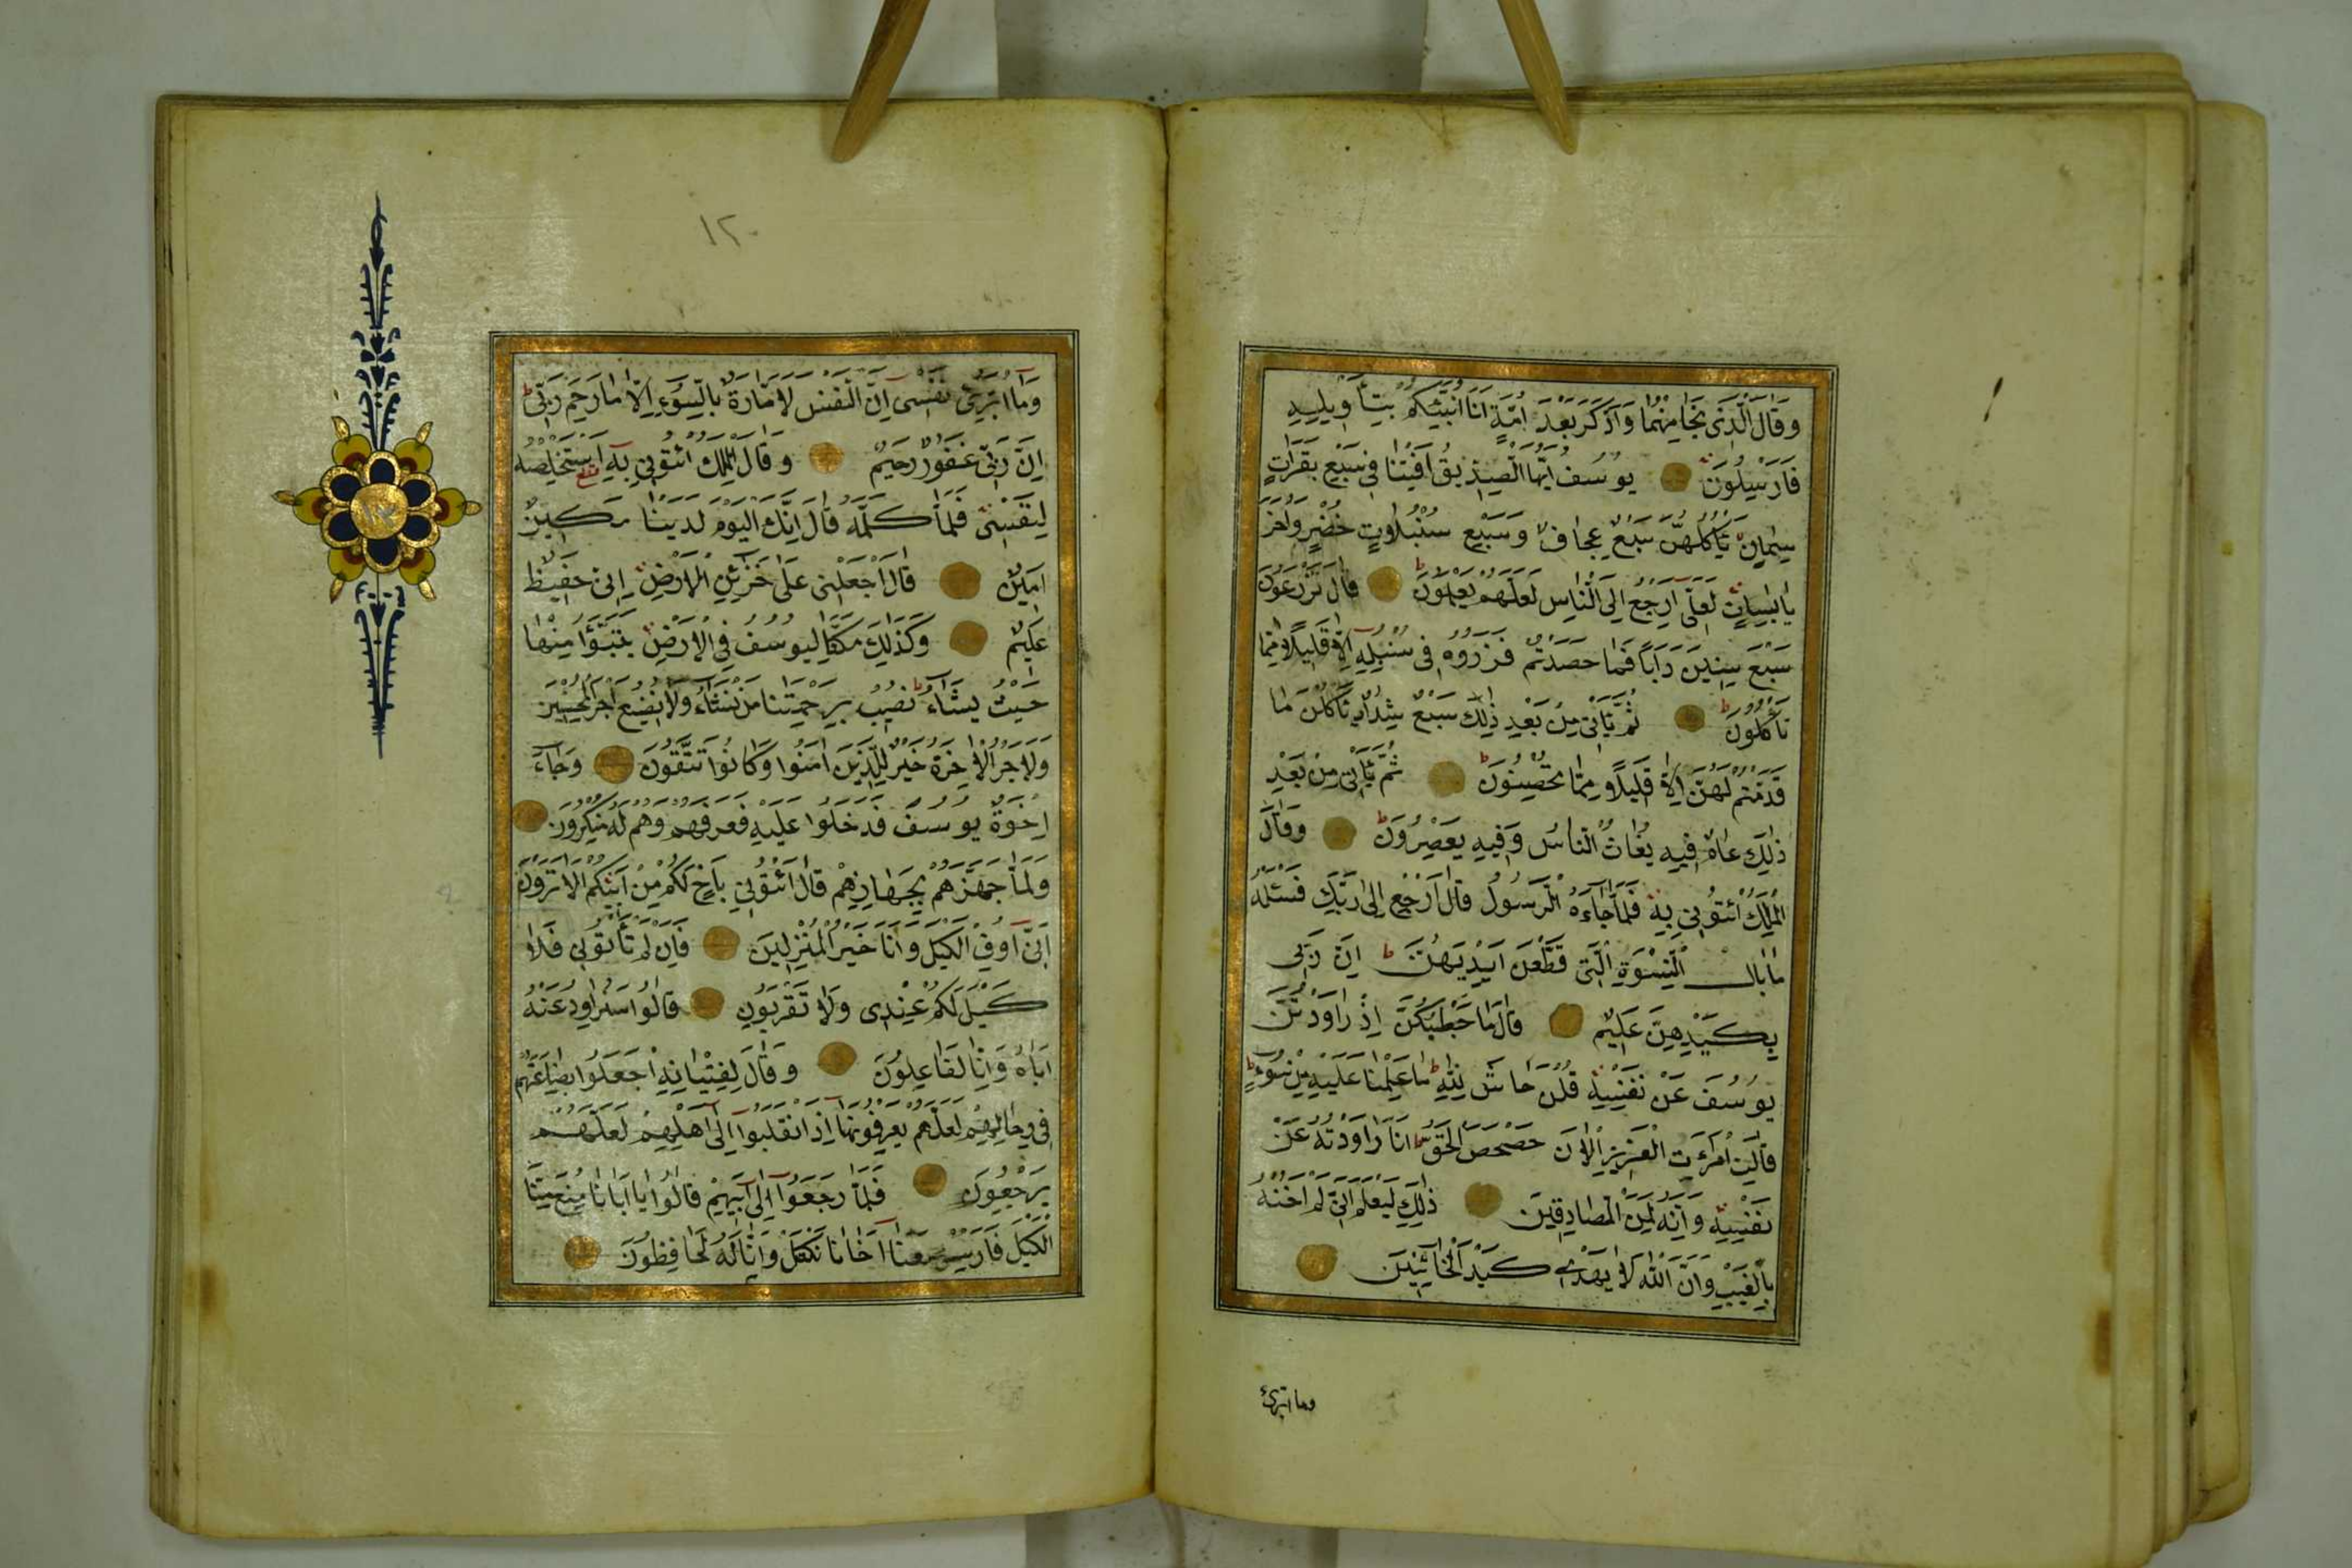 وَقَالَ الَّذِى نَجَا مِنْهُمَا وَادَّكَرَ بَعْدَ اُمَّةٍ اَنَا اُنَبِّئُكُمْ بِتَأْوِيلِهِ
فَاَرْسِلُونِ يُوسُفُ اَيُّهَا الصِّدِّيقُ اَفْتِنَا فِى سَبْعِ بَقَرَاتٍ
سِمَانٍ يَأْكُلُهُنَّ سَبْعٌ عِجَافٌ وَسَبْعِ سُنْبُلَاتٍ خُضْرٍ وَاُخَرَ
يَابِسَاتٍ لَعَلِّى اَرْجِعُ اِلَى النَّاسِ لَعَلَّهُمْ يَعْلَمُونَ قَالَ تَزْرَعُونَ
سَبْعَ سِنِينَ دَاَبًا فَمَا حَصَدْتُمْ فَذَرُوهُ فِى سُنْبُلِهِ اِلَّا قَلِيلًا مِمَّا
تَأْكُلُونَ ثُمَّ يَأْتِى مِنْ بَعْدِ ذٰلِكَ سَبْعٌ شِدَادٌ يَأْكُلْنَ مَا
قَدَّمْتُمْ لَهُنَّ اِلَّا قَلِيلًا مِمَّا تُحْصِنُونَ ثُمَّ يَأْتِى مِنْ بَعْدِ
ذٰلِكَ عَامٌ فِيهِ يُغَاثُ النَّاسُ وَفِيهِ يَعْصِرُونَ وَقَالَ
الْمَلِكُ ائْتُونِى بِهِ فَلَمَّا جَاءَهُ الرَّسُولُ قَالَ ارْجِعْ اِلٰى رَبِّكَ فَسْئَلْهُ
مَا بَالُ النِّسْوَةِ الّٰتِى قَطَّعْنَ اَيْدِيَهُنَّ اِنَّ رَبِّى
بِكَيْدِهِنَّ عَلِيمٌ قَالَ مَا خَطْبُكُنَّ اِذْ رَاوَدْتُنَّ
يُوسُفَ عَنْ نَفْسِهِ قُلْنَ حَاشَ لِلّٰهِ مَا عَلِمْنَا عَلَيْهِ مِنْ سُوءٍ
قَالَتِ امْرَاَتُ الْعَزِيزِ الْاٰنَ حَصْحَصَ الْحَقُّ اَنَا رَاوَدْتُهُ عَنْ
نَفْسِهِ وَاِنَّهُ لَمِنَ الصَّادِقِينَ ذٰلِكَ لِيَعْلَمَ اَنِّى لَمْ اَخُنْهُ
بِالْغَيْبِ وَاَنَّ اللّٰهَ لَا يَهْدِى كَيْدَ الْخَائِنِينَ
وما ابرئ
١٢٠
وَمَا اُبَرِّئُ نَفْسِى اِنَّ النَّفْسَ لَاَمَّارَةٌ بِالسُّوءِ اِلَّا مَا رَحِمَ رَبِّى
اِنَّ رَبِّى غَفُورٌ رَحِيمٌ وَقَالَ الْمَلِكُ ائْتُونِى بِهِ اَسْتَخْلِصْهُ
لِنَفْسِى فَلَمَّا كَلَّمَهُ قَالَ اِنَّكَ الْيَوْمَ لَدَيْنَا مَكِينٌ
اَمِينٌ قَالَ اجْعَلْنِى عَلٰى خَزَائِنِ الْاَرْضِ اِنِّى حَفِيظٌ
عَلِيمٌ وَكَذٰلِكَ مَكَّنَّا لِيُوسُفَ فِى الْاَرْضِ يَتَبَوَّؤُا مِنْهَا
حَيْثُ يَشَاءُ نُصِيبُ بِرَحْمَتِنَا مَنْ نَشَاءُ وَلَا نُضِيعُ اَجْرَ الْمُحْسِنِينَ
وَلَاَجْرُ الْاٰخِرَةِ خَيْرٌ لِلَّذِينَ اٰمَنُوا وَكَانُوا يَتَّقُونَ وَجَاءَ
اِخْوَةُ يُوسُفَ فَدَخَلُوا عَلَيْهِ فَعَرَفَهُمْ وَهُمْ لَهُ مُنْكِرُونَ
وَلَمَّا جَهَّزَهُمْ بِجَهَازِهِمْ قَالَ ائْتُونِى بِاَخٍ لَكُمْ مِنْ اَبِيكُمْ اَلَا تَرَوْنَ
اَنِّى اُوفِى الْكَيْلَ وَاَنَا خَيْرُ الْمُنْزِلِينَ فَاِنْ لَمْ تَأْتُونِى بِهِ فَلَا
كَيْلَ لَكُمْ عِنْدِى وَلَا تَقْرَبُونِ قَالُوا سَنُرَاوِدُ عَنْهُ
اَبَاهُ وَاِنَّا لَفَاعِلُونَ وَقَالَ لِفِتْيَانِهِ اجْعَلُوا بِضَاعَتَهُمْ
فِى رِحَالِهِمْ لَعَلَّهُمْ يَعْرِفُونَهَا اِذَا انْقَلَبُوا اِلٰى اَهْلِهِمْ لَعَلَّهُمْ
يَرْجِعُونَ فَلَمَّا رَجَعُوا اِلٰى اَبِيهِمْ قَالُوا يَا اَبَانَا مُنِعَ مِنَّا
الْكَيْلُ فَاَرْسِلْ مَعَنَا اَخَانَا نَكْتَلْ وَاِنَّا لَهُ لَحَافِظُونَ